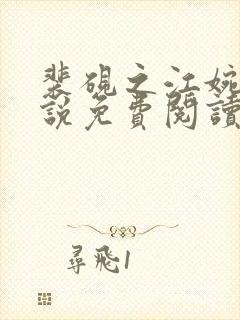 裴硯之江婉
說免費閱讀
尋飛1